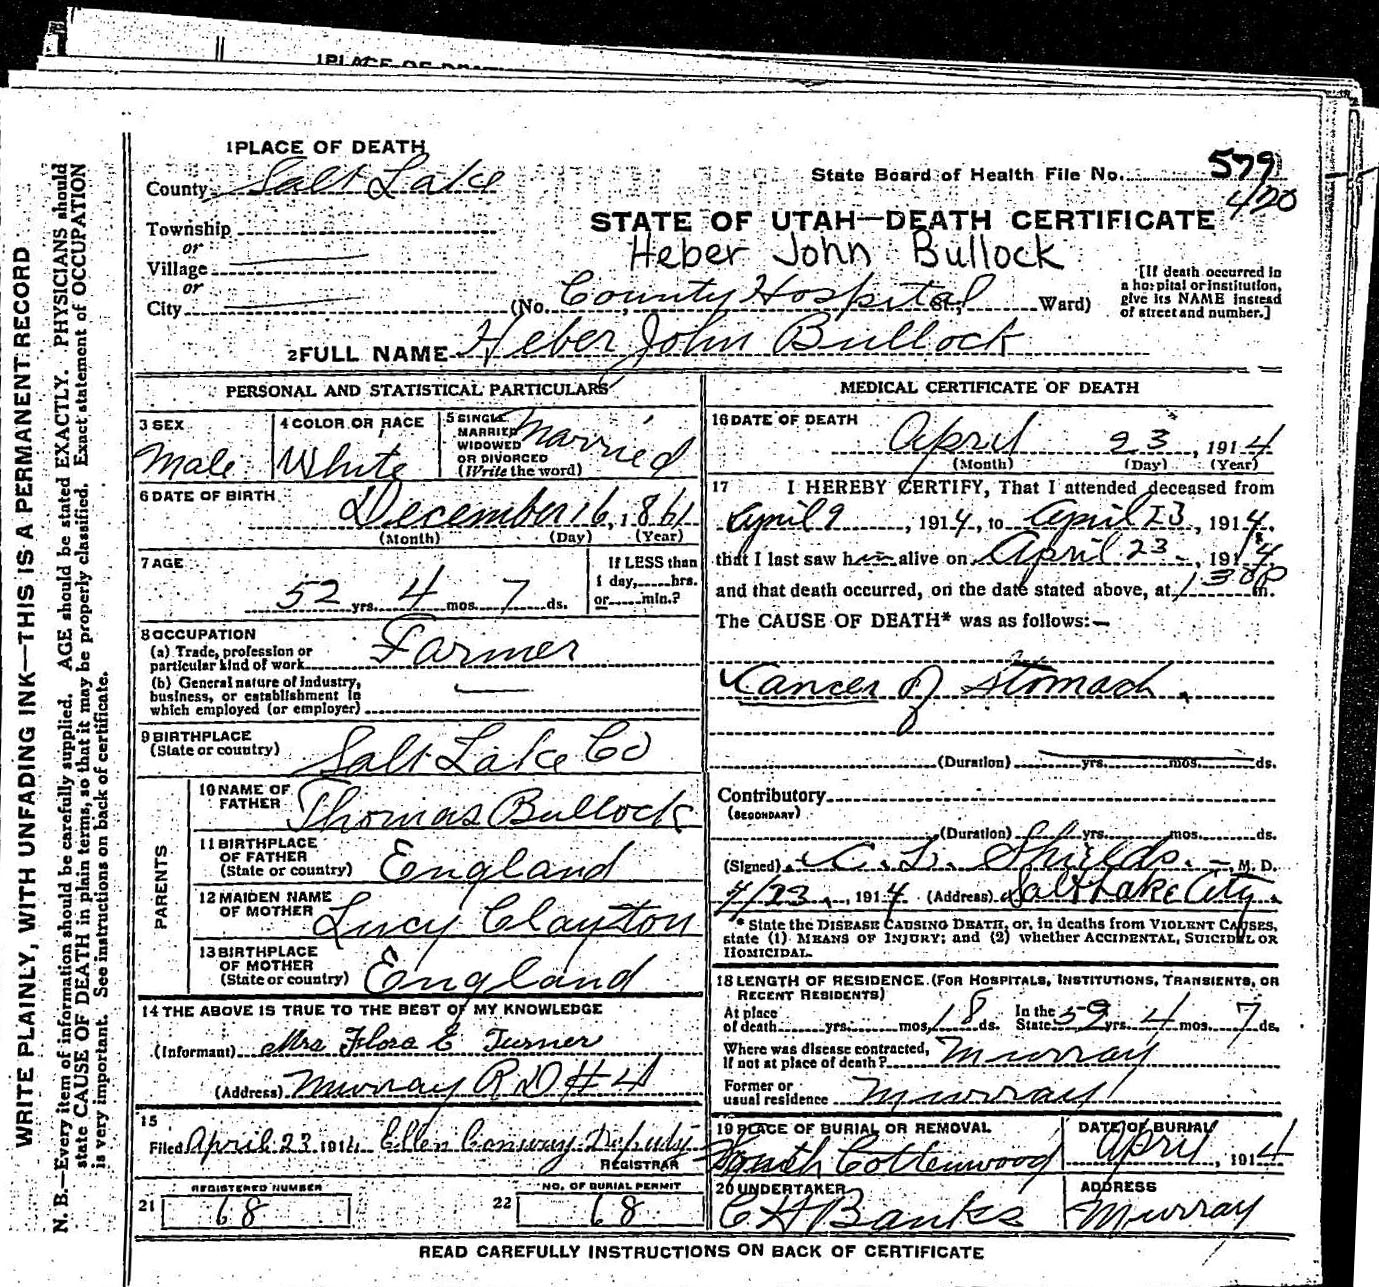 1 PLACE OF DEATH
County Salt Lake
State Board of Health File No. 579
420
Township
or
Village
or
City
STATE OF UTAH—DEATH CERTIFICATE
Heber John Bullock
(No. County Hospital St., Ward)
[If death occurred in
a hospital or institution,
give its NAME instead
of street and number.]
2 FULL NAME Heber John Bullock
PERSONAL AND STATISTICAL PARTICULARS
3 SEX
Male
4 COLOR OR RACE
White
5 SINGLE
MARRIED
WIDOWED
OR DIVORCED
(Write the word)
Married
6 DATE OF BIRTH
December 16, 1861
(Month) (Day) (Year)
7 AGE
52 yrs. 4 mos. 7 ds.
If LESS than
1 day, hrs.
or min.?
8 OCCUPATION
(a) Trade, profession or
particular kind of work Farmer
(b) General nature of industry,
business, or establishment in
which employed (or employer)
9 BIRTHPLACE
(State or country) Salt Lake Co
PARENTS
10 NAME OF
FATHER Thomas Bullock
11 BIRTHPLACE
OF FATHER
(State or country) England
12 MAIDEN NAME
OF MOTHER Lucy Clayton
13 BIRTHPLACE
OF MOTHER
(State or country) England
14 THE ABOVE IS TRUE TO THE BEST OF MY KNOWLEDGE
(Informant) Mrs Flora E Turner
(Address) Murray R D #4
15
Filed April 23 1914 Ellen Conway Deputy
REGISTRAR
REGISTERED NUMBER
21 68
NO. OF BURIAL PERMIT
22 68
MEDICAL CERTIFICATE OF DEATH
16 DATE OF DEATH
April 23, 1914
(Month) (Day) (Year)
17 I HEREBY CERTIFY, That I attended deceased from
April 9, 1914, to April 23, 1914,
that I last saw him alive on April 23, 1914
and that death occurred, on the date stated above, at 1 30 P m.
The CAUSE OF DEATH* was as follows:—
Cancer of Stomach.
(Duration) yrs. mos. ds.
Contributory
(SECONDARY)
(Duration) yrs. mos. ds.
(Signed) C. L. Shields. M. D.
4/23, 1914 (Address) Salt Lake City.
* State the DISEASE CAUSING DEATH, or, in deaths from VIOLENT CAUSES,
state (1) MEANS OF INJURY; and (2) whether ACCIDENTAL, SUICIDAL OR
HOMICIDAL.
18 LENGTH OF RESIDENCE (FOR HOSPITALS, INSTITUTIONS, TRANSIENTS, OR
RECENT RESIDENTS)
At place
of death yrs. mos. 18 ds.
In the
State 52 yrs. 4 mos. 7 ds.
Where was disease contracted,
if not at place of death? Murray
Former or
usual residence Murray
19 PLACE OF BURIAL OR REMOVAL
South Cottonwood
DATE OF BURIAL
April, 1914
20 UNDERTAKER
C H Banks
ADDRESS
Murray
READ CAREFULLY INSTRUCTIONS ON BACK OF CERTIFICATE
WRITE PLAINLY, WITH UNFADING INK—THIS IS A PERMANENT RECORD
N. B.—Every item of information should be carefully supplied. AGE should be stated EXACTLY. PHYSICIANS should
state CAUSE OF DEATH in plain terms, so that it may be properly classified. Exact statement of OCCUPATION
is very important. See instructions on back of certificate.